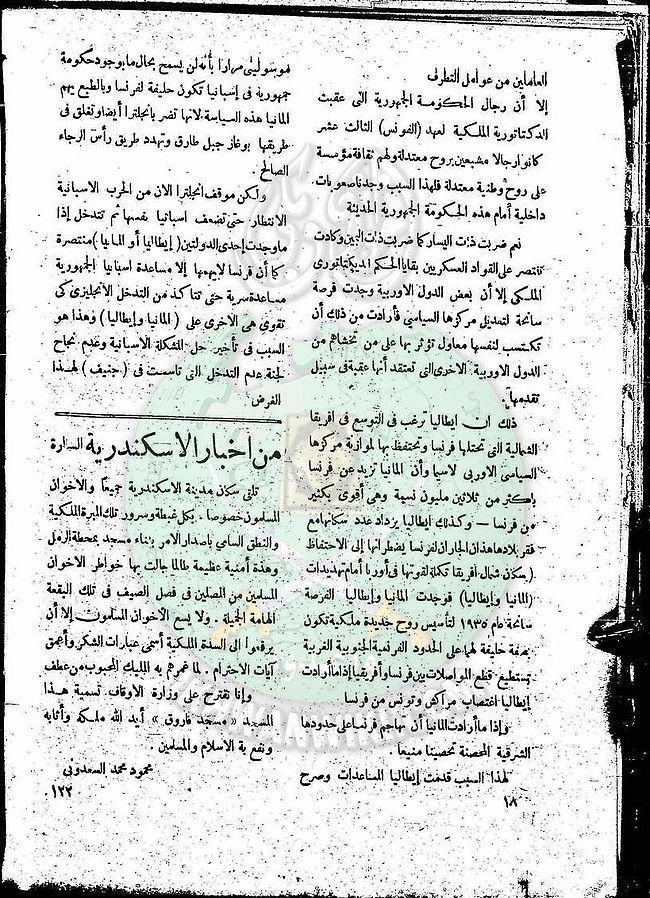 العاملين من عوامل التطرف
إلا أن رجال الحكومة الجمهورية التى عقبت
الدكتاتورية الملكية لعهد (الفونس) الثالث عشر
كانوا رجالا مشبعين بروح معتدلة ولهم ثقافة مؤسسة
على روح وطنية معتدلة فلهذا السبب وجدنا صعوبات
داخلية أمام هذه الحكومة الجمهورية الحديثة
نعم ضربت ذات اليسار كما ضربت ذات اليمين وكادت
تنتصر على القواد العسكريين بقايا الحكم الديكتاتورى
الملكى إلا أن بعض الدول الاوربية وجدت فرصة
سانحة لتعديل مركزها السياسى فأرادت من ذلك أن
تكتسب لنفسها معاول تؤثر بها على من تخشاهم من
الدول الاوربية الاخرى التى تعتقد أنها عقبة فى سبيل
تقدمها
ذلك أن إيطاليا ترغب فى التوسع فى افريقا
الشمالية التى تحتلها فرنسا وتحتفظ بها لموازنة مركزها
السياسى الاوربى لاسيما وأن المانيا تزيد عن فرنسا
بأكثر من ثلاثين مليون نسمة وهى أقوى بكثير
من فرنسا — وكذلك إيطاليا يزداد عدد سكانها مع
فقر بلادها هذان الجاران لفرنسا يضطرانها إلى الاحتفاظ
(بسكان شمال افريقا تكملة لقوتها فى أوربا أمام تهديدات
(المانيا وإيطاليا) فوجدت المانيا وإيطاليا الفرصة
سانحة عام ١٩٣٥ لتأسيس روح جديدة ملكية تكون
بصفة خليفة لهما على الحدود الفرنسية الجنوبية الغربية
تستطيع قطع المواصلات بين فرنسا وأفريقيا إذا ما أرادت
إيطاليا اغتصاب مراكش وتونس من فرنسا
وإذا ما أرادت المانيا أن تهاجم فرنسا على حدودها
الشرقية المحصنة تحصينا منيعا .
لهذا السبب قدمت إيطاليا المساعدات وصرح
١٨
موسولينى مرارا بأنه لن يسمح بحال ما بوجود حكومة
جمهورية فى إسبانيا تكون حليفة لفرنسا وبالطبع يهم
المانيا هذه السياسة لانها تضر بانجلترا أيضا وتغلق فى
طريقها بوغاز جبل طارق وتهدد طريق رأس الرجاء
الصالح .
ولكن موقف انجلترا الآن من الحرب الاسبانية
الانتظار حتى تضعف اسبانيا نفسها ثم تتدخل إذا
ما وجدت إحدى الدولتين (إيطاليا أو المانيا) منتصرة
كما أن فرنسا لايهمها إلا مساعدة اسبانيا الجمهورية
مساعدة سرية حتى تتأكد من التدخل الانجليزى كى
تقوى هى الاخرى على (المانيا وإيطاليا) وهذا هو
السبب فى تأخير حل المشكلة الاسبانية وعدم نجاح
لجنة عدم التدخل التى تأسست فى (جنيف) لهذا
الغرض
من أخبار الاسكندرية السارة
تلقى سكان مدينة الاسكندرية جميعا والاخوان
المسلمون خصوصا . بكل غبطة وسرور تلك المبرة الملكية
والنطق السامى باصدار الامر ببناء مسجد بمحطة الرمل
وهذه أمنية عظيمة طالما جالت بها خواطر الاخوان
المسلمين من المصلين فى فصل الصيف فى تلك البقعة
الهامة الجميلة . ولا يسع الاخوان المسلمون إلا أن
يرفعوا الى السدة الملكية أسمى عبارات الشكر وأعمق
آيات الاحترام . لما غمرهم به المليك المحبوب من عطف
وإنا نقترح على وزارة الاوقاف تسمية هذا
المسجد «مسجد فاروق» أيد الله ملكه وأثابه
ونفع به الاسلام والمسلمين .
محمود محمد السعدونى
١٢٢